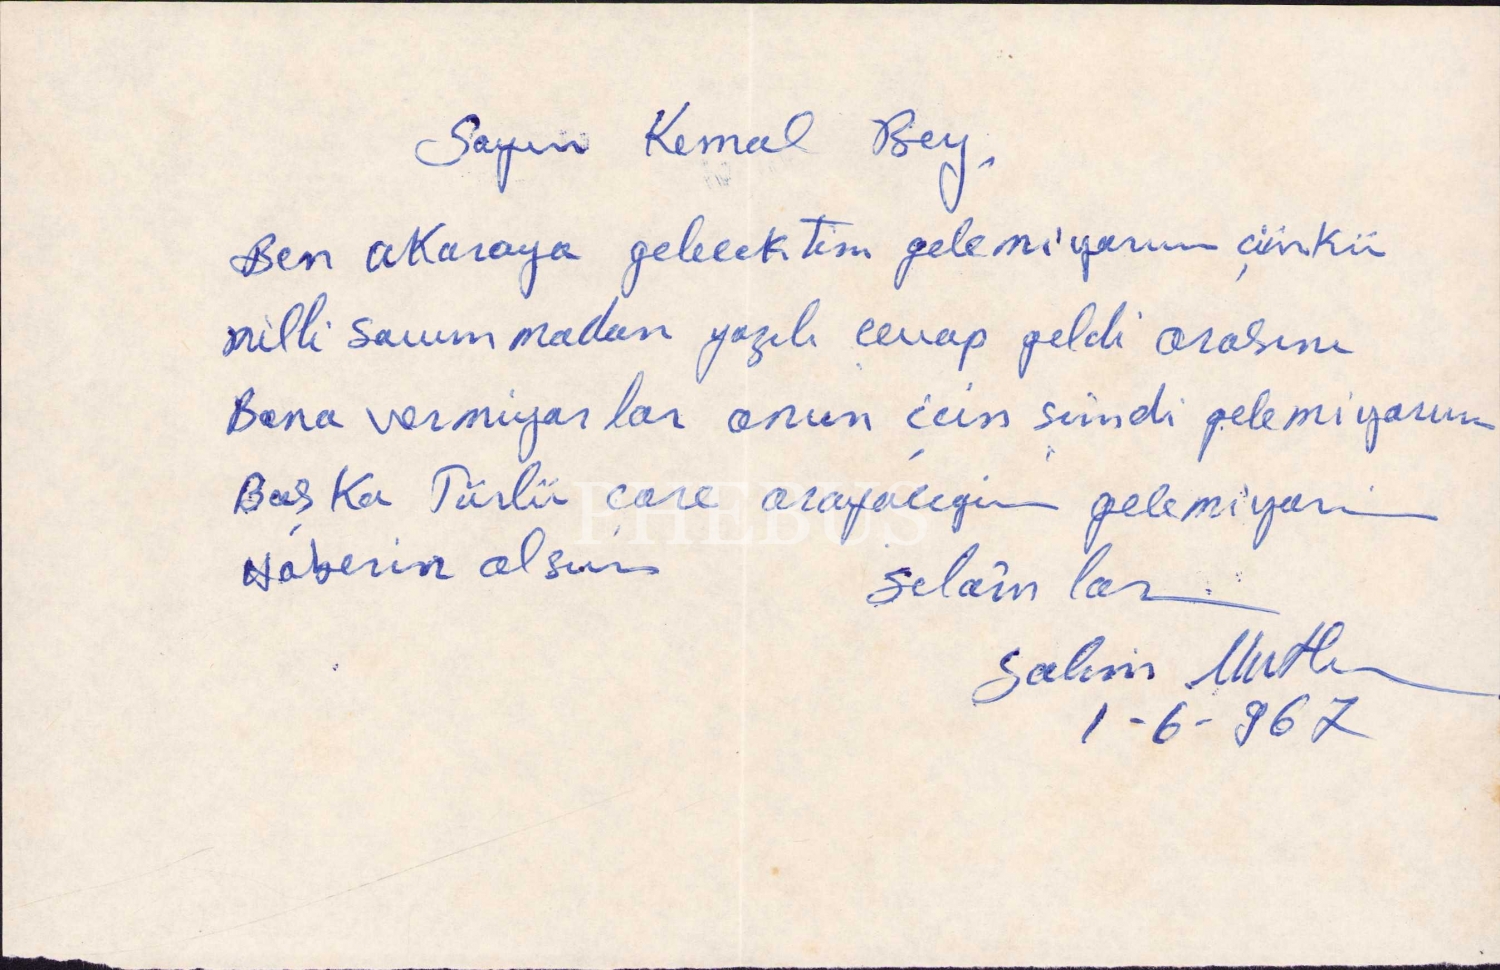 Sayın Kemal Bey,
Ben akaraya gelecektim gelemiyorum çünkü
milli savunmadan yazılı cevap geldi orasını
Bana vermiyorlar onun için şimdi gelemiyorum
Başka Türlü çare arayacağım gelemiyorum
Haberin olsun
PHEBUS
Selâmlar
Salim Mutlu
1-6-967